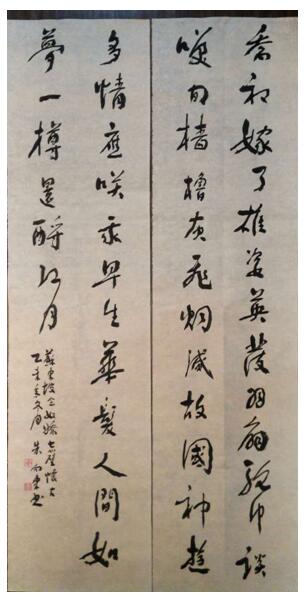 喬初嫁了雄姿英發羽扇綸巾談
咲間檣櫓灰飛烟滅故國神遊
多情應咲我早生華髮人間如
夢一樽還酹江月
蘇東坡念奴嬌赤壁懷古
乙亥年冬月朱